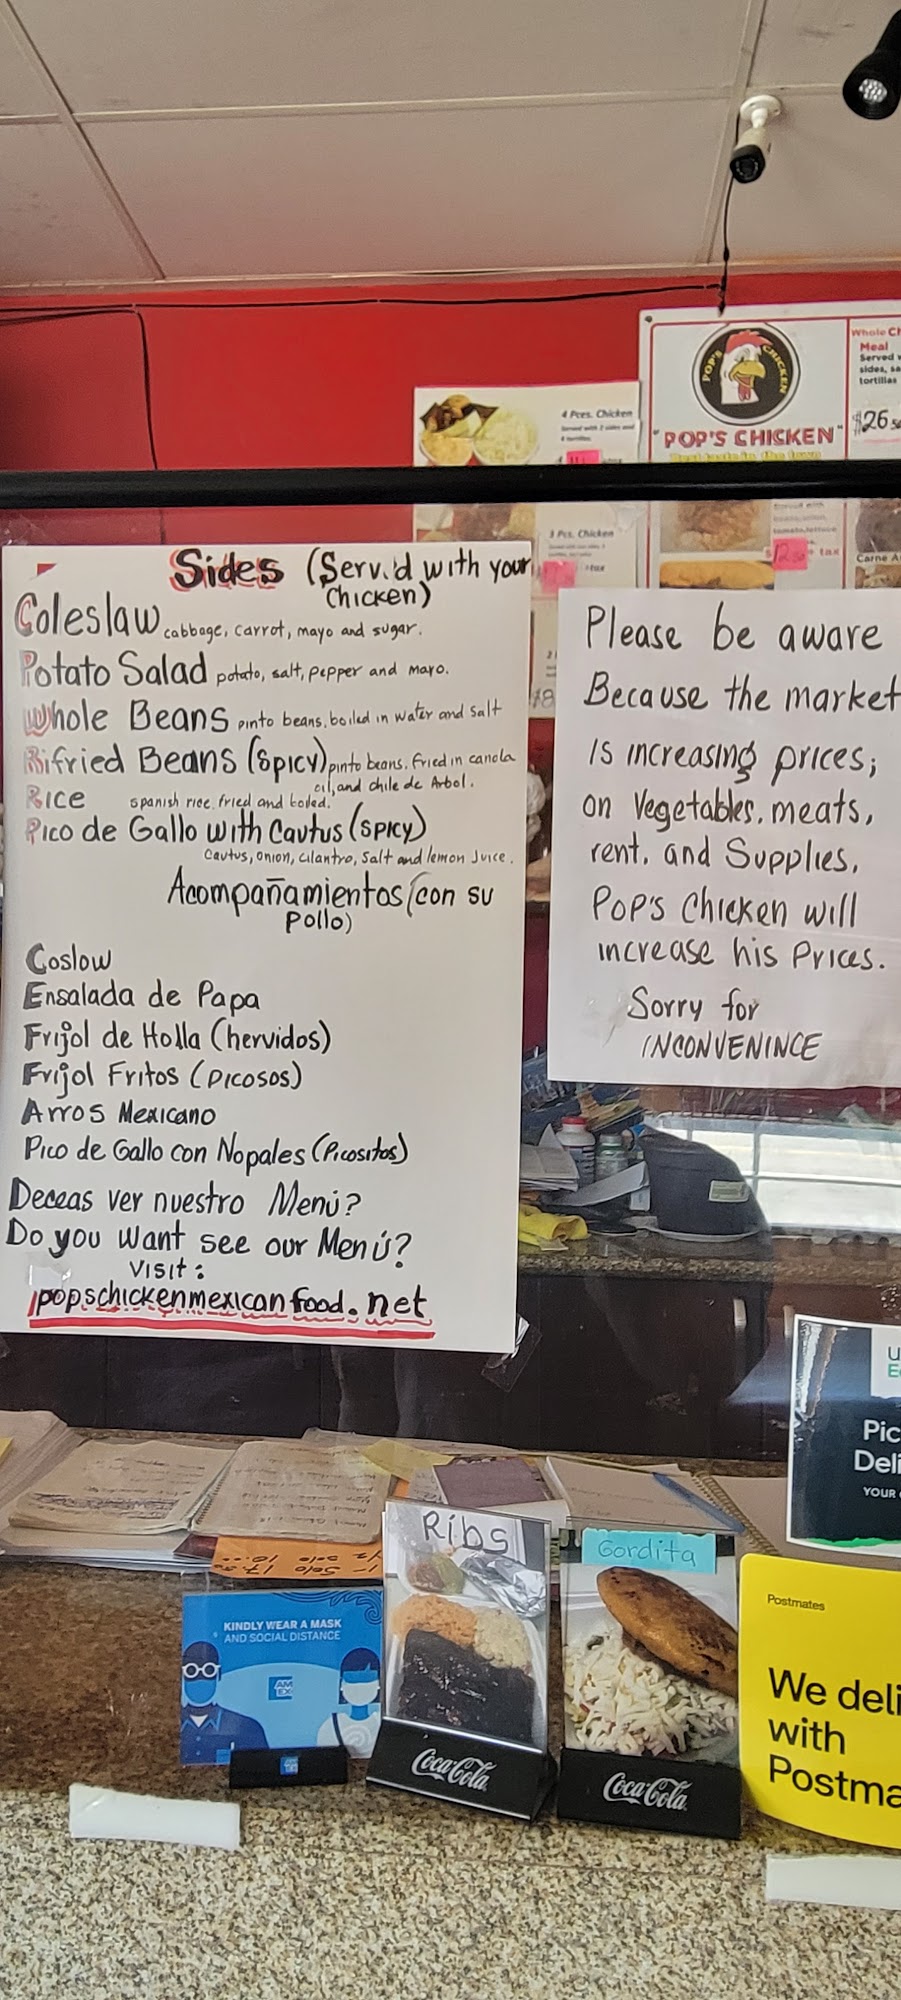 POP'S CHICKEN
"POP'S CHICKEN"
Best taste in the town
Whole Ch
Meal
Served w
sides, sa
tortillas
$26.50
4 Pces. Chicken
Served with 2 sides and
3 Pcs. Chicken
+ tax
Carne A
Sides (Serv.d with your
Chicken)
Coleslaw cabbage, carrot, mayo and sugar.
Potato Salad potato, salt, pepper and mayo.
Whole Beans pinto beans, boiled in water and salt
Rifried Beans (Spicy) pinto beans, fried in canola
oil, and chile de Arbol.
Rice spanish rice, fried and boiled.
Pico de Gallo with Cautus (SPICY)
Cautus, onion, cilantro, Salt and lemon Juice.
Acompañamientos (con su
pollo)
Coslow
Ensalada de Papa
Frijol de Holla (hervidos)
Frijol Fritos (Picosos)
Arros Mexicano
Pico de Gallo con Nopales (Picositos)
Deceas ver nuestro Menú?
Do you want see our Menú?
Visit:
popschickenmexicanfood.net
Please be aware
Because the market
is increasing prices;
on Vegetables, meats,
rent, and Supplies,
Pop's Chicken will
increase his Prices.
Sorry for
INCONVENINCE
U
E
Pic
Deli
YOUR
Ribs
Gordita
KINDLY WEAR A MASK
AND SOCIAL DISTANCE
AM
EX
Coca-Cola
Coca-Cola
Postmates
We deli
with
Postma